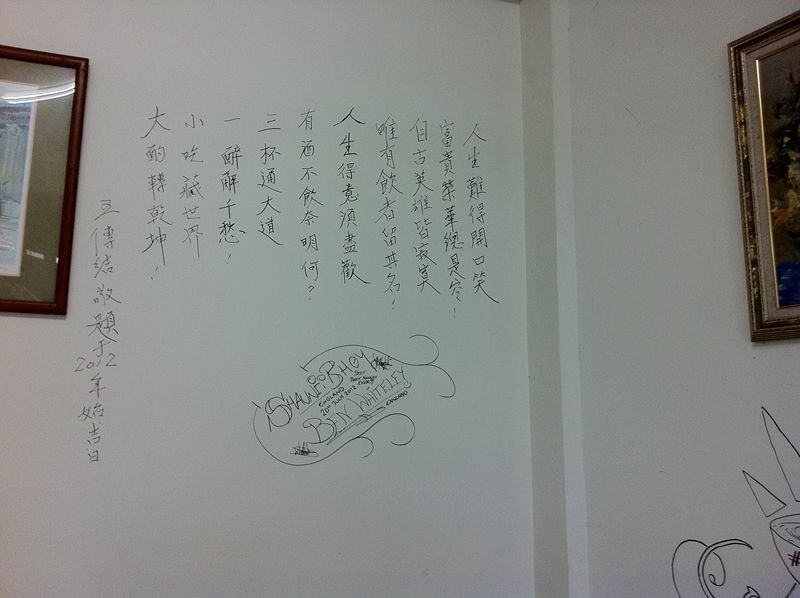 人生難得開口笑
富貴榮華總是空！
自古英雄皆寂寞
唯有飲者留其名！
人生得意須盡歡
有酒不飲奈明何？
三杯通大道
一醉解千愁！
小吃藏世界
大酌轉乾坤！
傳結敬題于2012年始吉日
SHAUNE BHOY
ENGLAND
20TH JUN 2012
BEN WHITELEY
ENGLAND